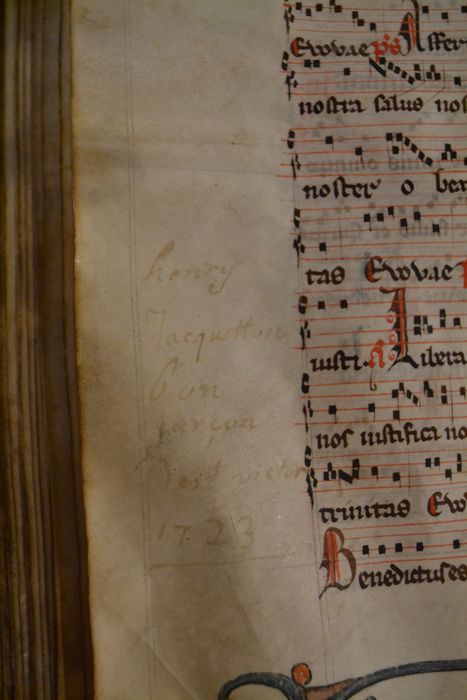 Evovae ps Affer
nostra salus nos
noster o bea
tas Evovae
iusti. a Libera
nos iustifica no
trinitas Ev
Benedictus es
henry
Jacquotton
bon
garçon
dest victor
1723